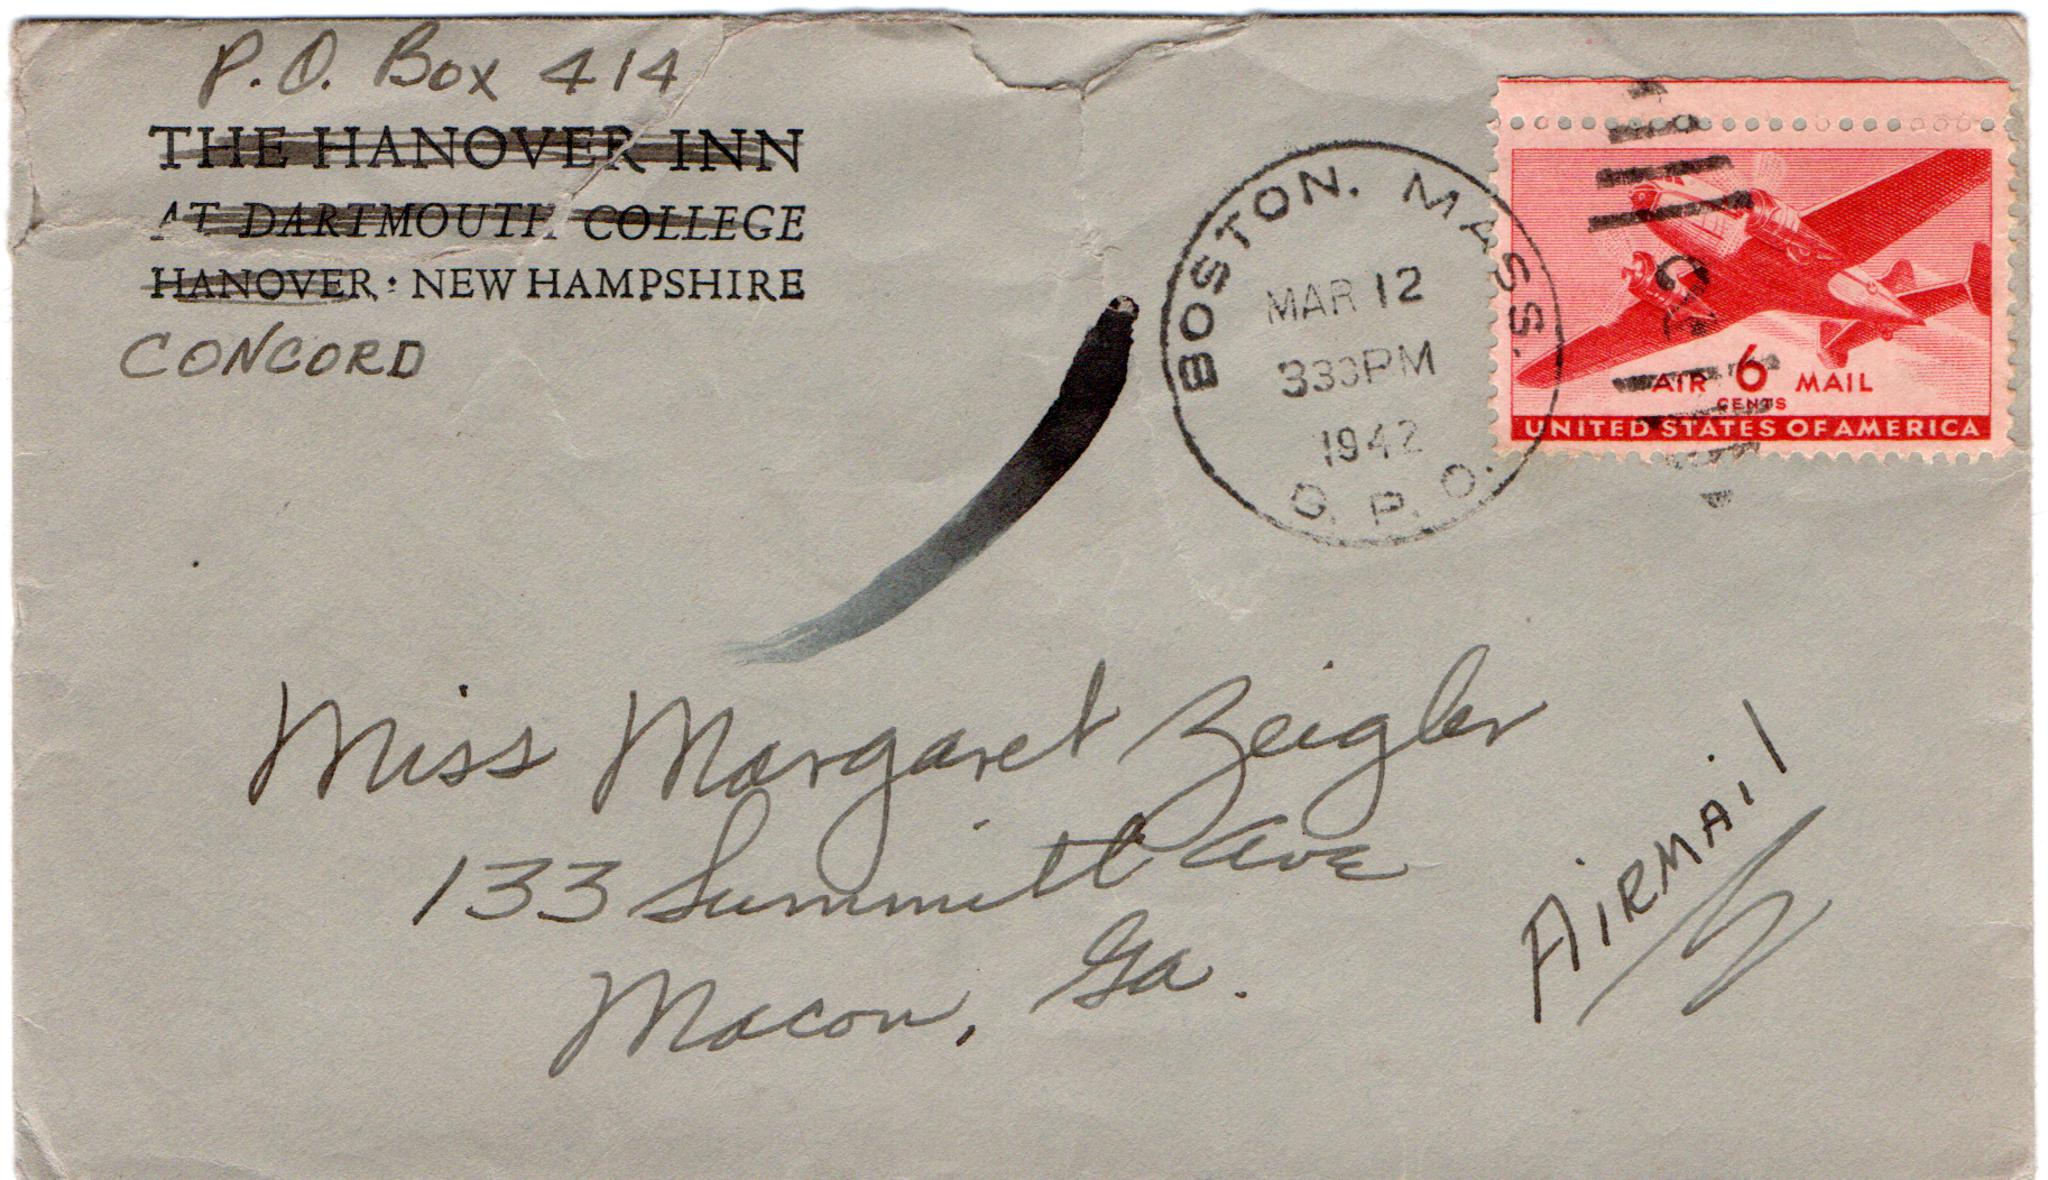 P.O. Box 414
THE HANOVER INN
AT DARTMOUTH COLLEGE
HANOVER : NEW HAMPSHIRE
CONCORD
BOSTON, MASS.
MAR 12
330PM
1942
G. P. O.
AIR 6 MAIL
CENTS
UNITED STATES OF AMERICA
Miss Margaret Zeigler
133 Summitt Ave
Macon, Ga.
AiRMAil